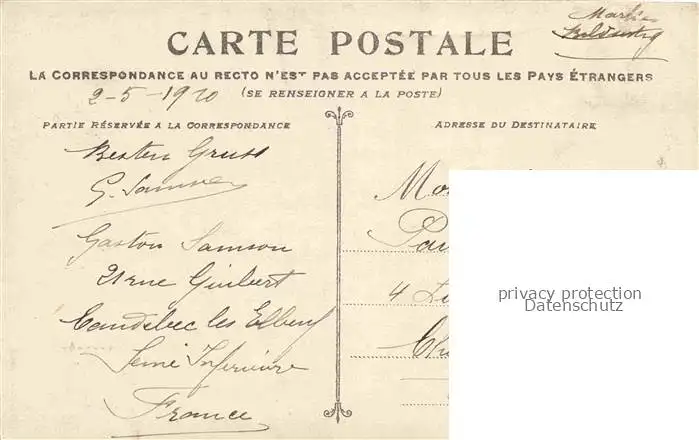 CARTE POSTALE
LA CORRESPONDANCE AU RECTO N'EST PAS ACCEPTÉE PAR TOUS LES PAYS ÉTRANGERS
2-5-1910
(SE RENSEIGNER A LA POSTE)
PARTIE RÉSERVÉE A LA CORRESPONDANCE
Besten Gruss
G. Samson
Gaston Samson
21 rue Guibert
Caudebec les Elbeuf
Seine Inferieure
France
ADRESSE DU DESTINATAIRE
Mo
Pau
4
Ch
privacy protection
Datenschutz